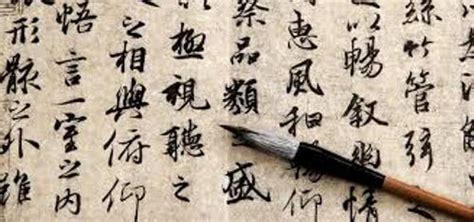 絲竹管弦
以暢敘幽情
惠風和暢仰
察品類之盛
極視聽之
之相與俯仰
悟言一室之內
形骸之外雖